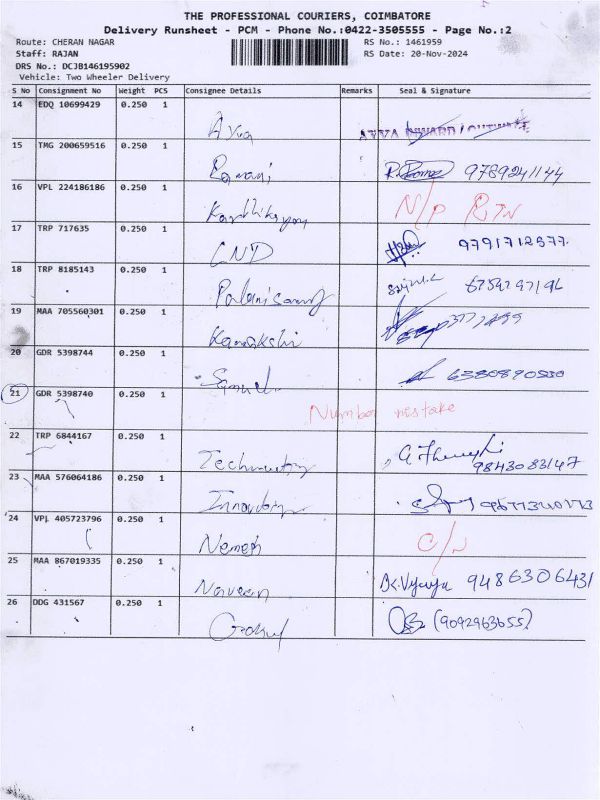 THE PROFESSIONAL COURIERS, COIMBATORE
Delivery Runsheet - PCM - Phone No.:0422-3505555 - Page No.:2
Route: CHERAN NAGAR RS No.: 1461959
Staff: RAJAN RS Date: 20-Nov-2024
DRS No.: DCJB146195902
Vehicle: Two Wheeler Delivery
S No Consignment No Weight PCS Consignee Details Remarks Seal & Signature
14 EDQ 10699429 0.250 1
Avva AVVA INWARD / OUTWARD
15 TMG 200659516 0.250 1
Ramani 9789241144
16 VPL 224186186 0.250 1
Karthikeyan N/P RTN
17 TRP 717635 0.250 1
CND
18 TRP 8185143 0.250 1
Palanisamy
19 MAA 705560301 0.250 1
Kamakshi
20 GDR 5398744 0.250 1
6380890550
21 GDR 5398740 0.250 1
Number mistake
22 TRP 6844167 0.250 1
9843083147
23 MAA 576064186 0.250 1
24 VPL 405723796 0.250 1
Nemesh C/N
25 MAA 867019335 0.250 1
Naveen 9486306431
26 DDG 431567 0.250 1
Gokul (9092963655)